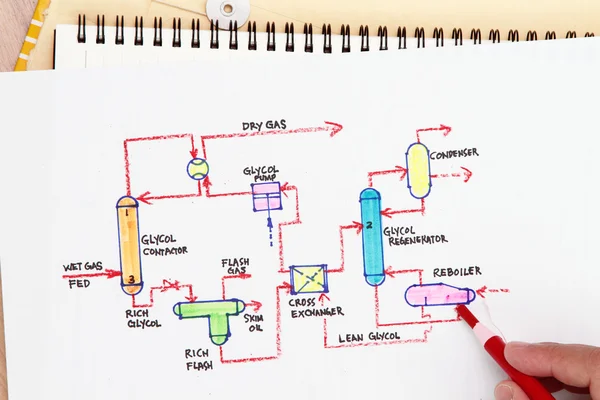 DRY GAS
GLYCOL
PUMP
CONDENSER
1
GLYCOL
CONTACTOR
2
GLYCOL
REGENERATOR
WET GAS
FED
3
FLASH
GAS
REBOILER
RICH
GLYCOL
SKIM
OIL
CROSS
EXCHANGER
LEAN GLYCOL
RICH
FLASH